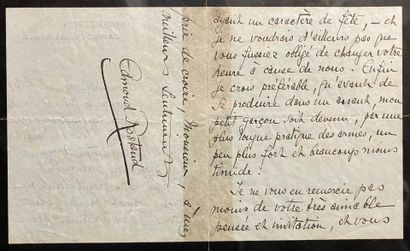 ayant un caractère de fête, — et
je ne voudrais d'ailleurs pas que
vous fussiez obligé de changer votre
heure à cause de nous. Enfin
je crois préférable, qu'avant de
se produire dans un assaut, mon
petit garçon soit devenu, par une
plus longue pratique des armes, un
peu plus fort et beaucoup moins
timide!
Je ne vous en remercie pas
moins de votre très aimable
pensée et invitation, et vous
prie de croire, Monsieur, à mes
meilleurs sentiments
Edmond Rostand